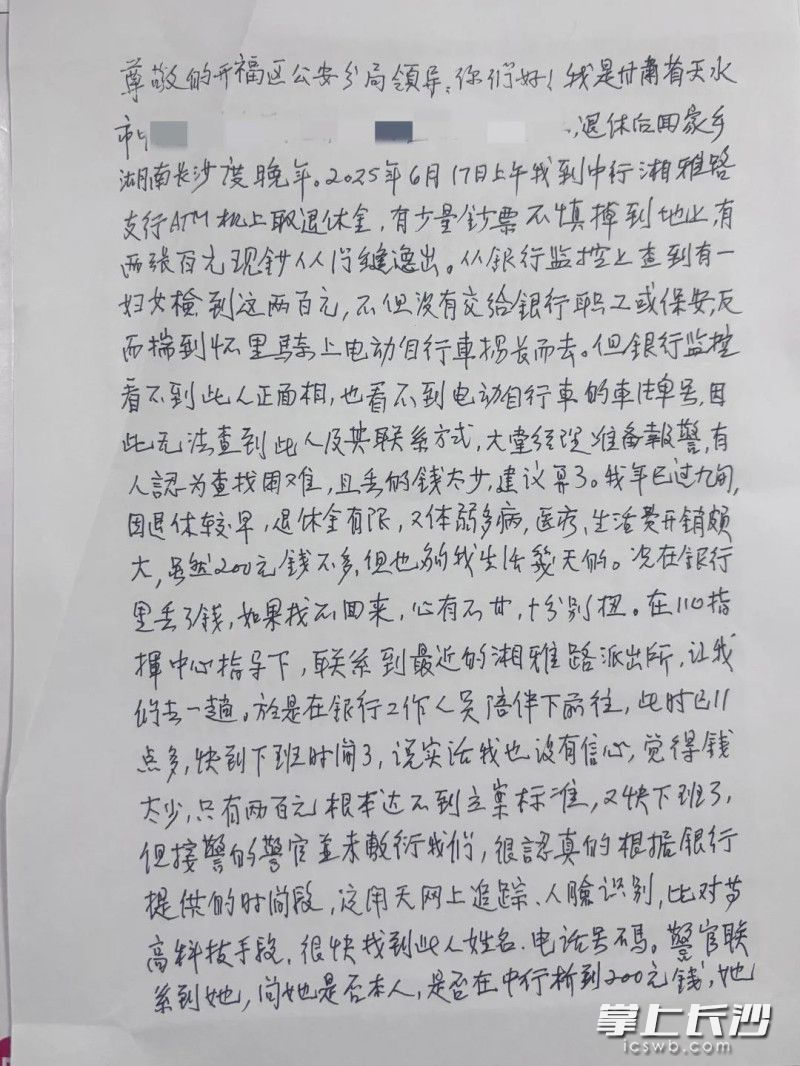 尊敬的开福区公安分局领导:你们好!我是甘肃省天水
市 ,退休后回家乡
湖南长沙度晚年。2025年6月17日上午我到中行湘雅路
支行ATM机上取退休金,有少量钞票不慎掉到地上,有
两张百元现鈔从门缝逸出。从銀行监控上查到有一
妇女檢到这两百元,不但没有交给銀行职工或保安,反
而揣到怀里騎上电动自行車揚长而去。但銀行监控
看不到此人正面相,也看不到电动自行車的車牌号,因
此无法查到此人及其联系方式,大堂经理准备報警,有
人認为查找困难,且丢的钱太少,建议算了。我年已过九旬,
因退休较早,退休金有限,又体弱多病,医疗、生活费开销頗
大,虽然200元錢不多,但也够我生活幾天的。况在銀行
里丢了錢,如果找不回来,心有不甘,十分别扭。在110指
揮中心指导下,联系到最近的湘雅路派出所,让我
们去一趟。於是在銀行工作人员陪伴下前往,此时已11
点多,快到下班时间了,说实话我也没有信心,觉得錢
太少,只有两百元根本达不到立案标准,又快下班了,
但接警的警官並未敷衍我们,很認真的根据銀行
提供的时间段,运用天网上追踪、人臉识别,比对等
高科技手段,很快找到此人姓名、电话号碼。警官联
系到她,问她是否本人,是否在中行拆到200元錢,她
掌上长沙
icswb.com